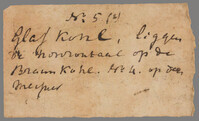 No 5 (4)
Glaskohl, liggen
de horizontaal op de
Braunkohl. No 4. op den